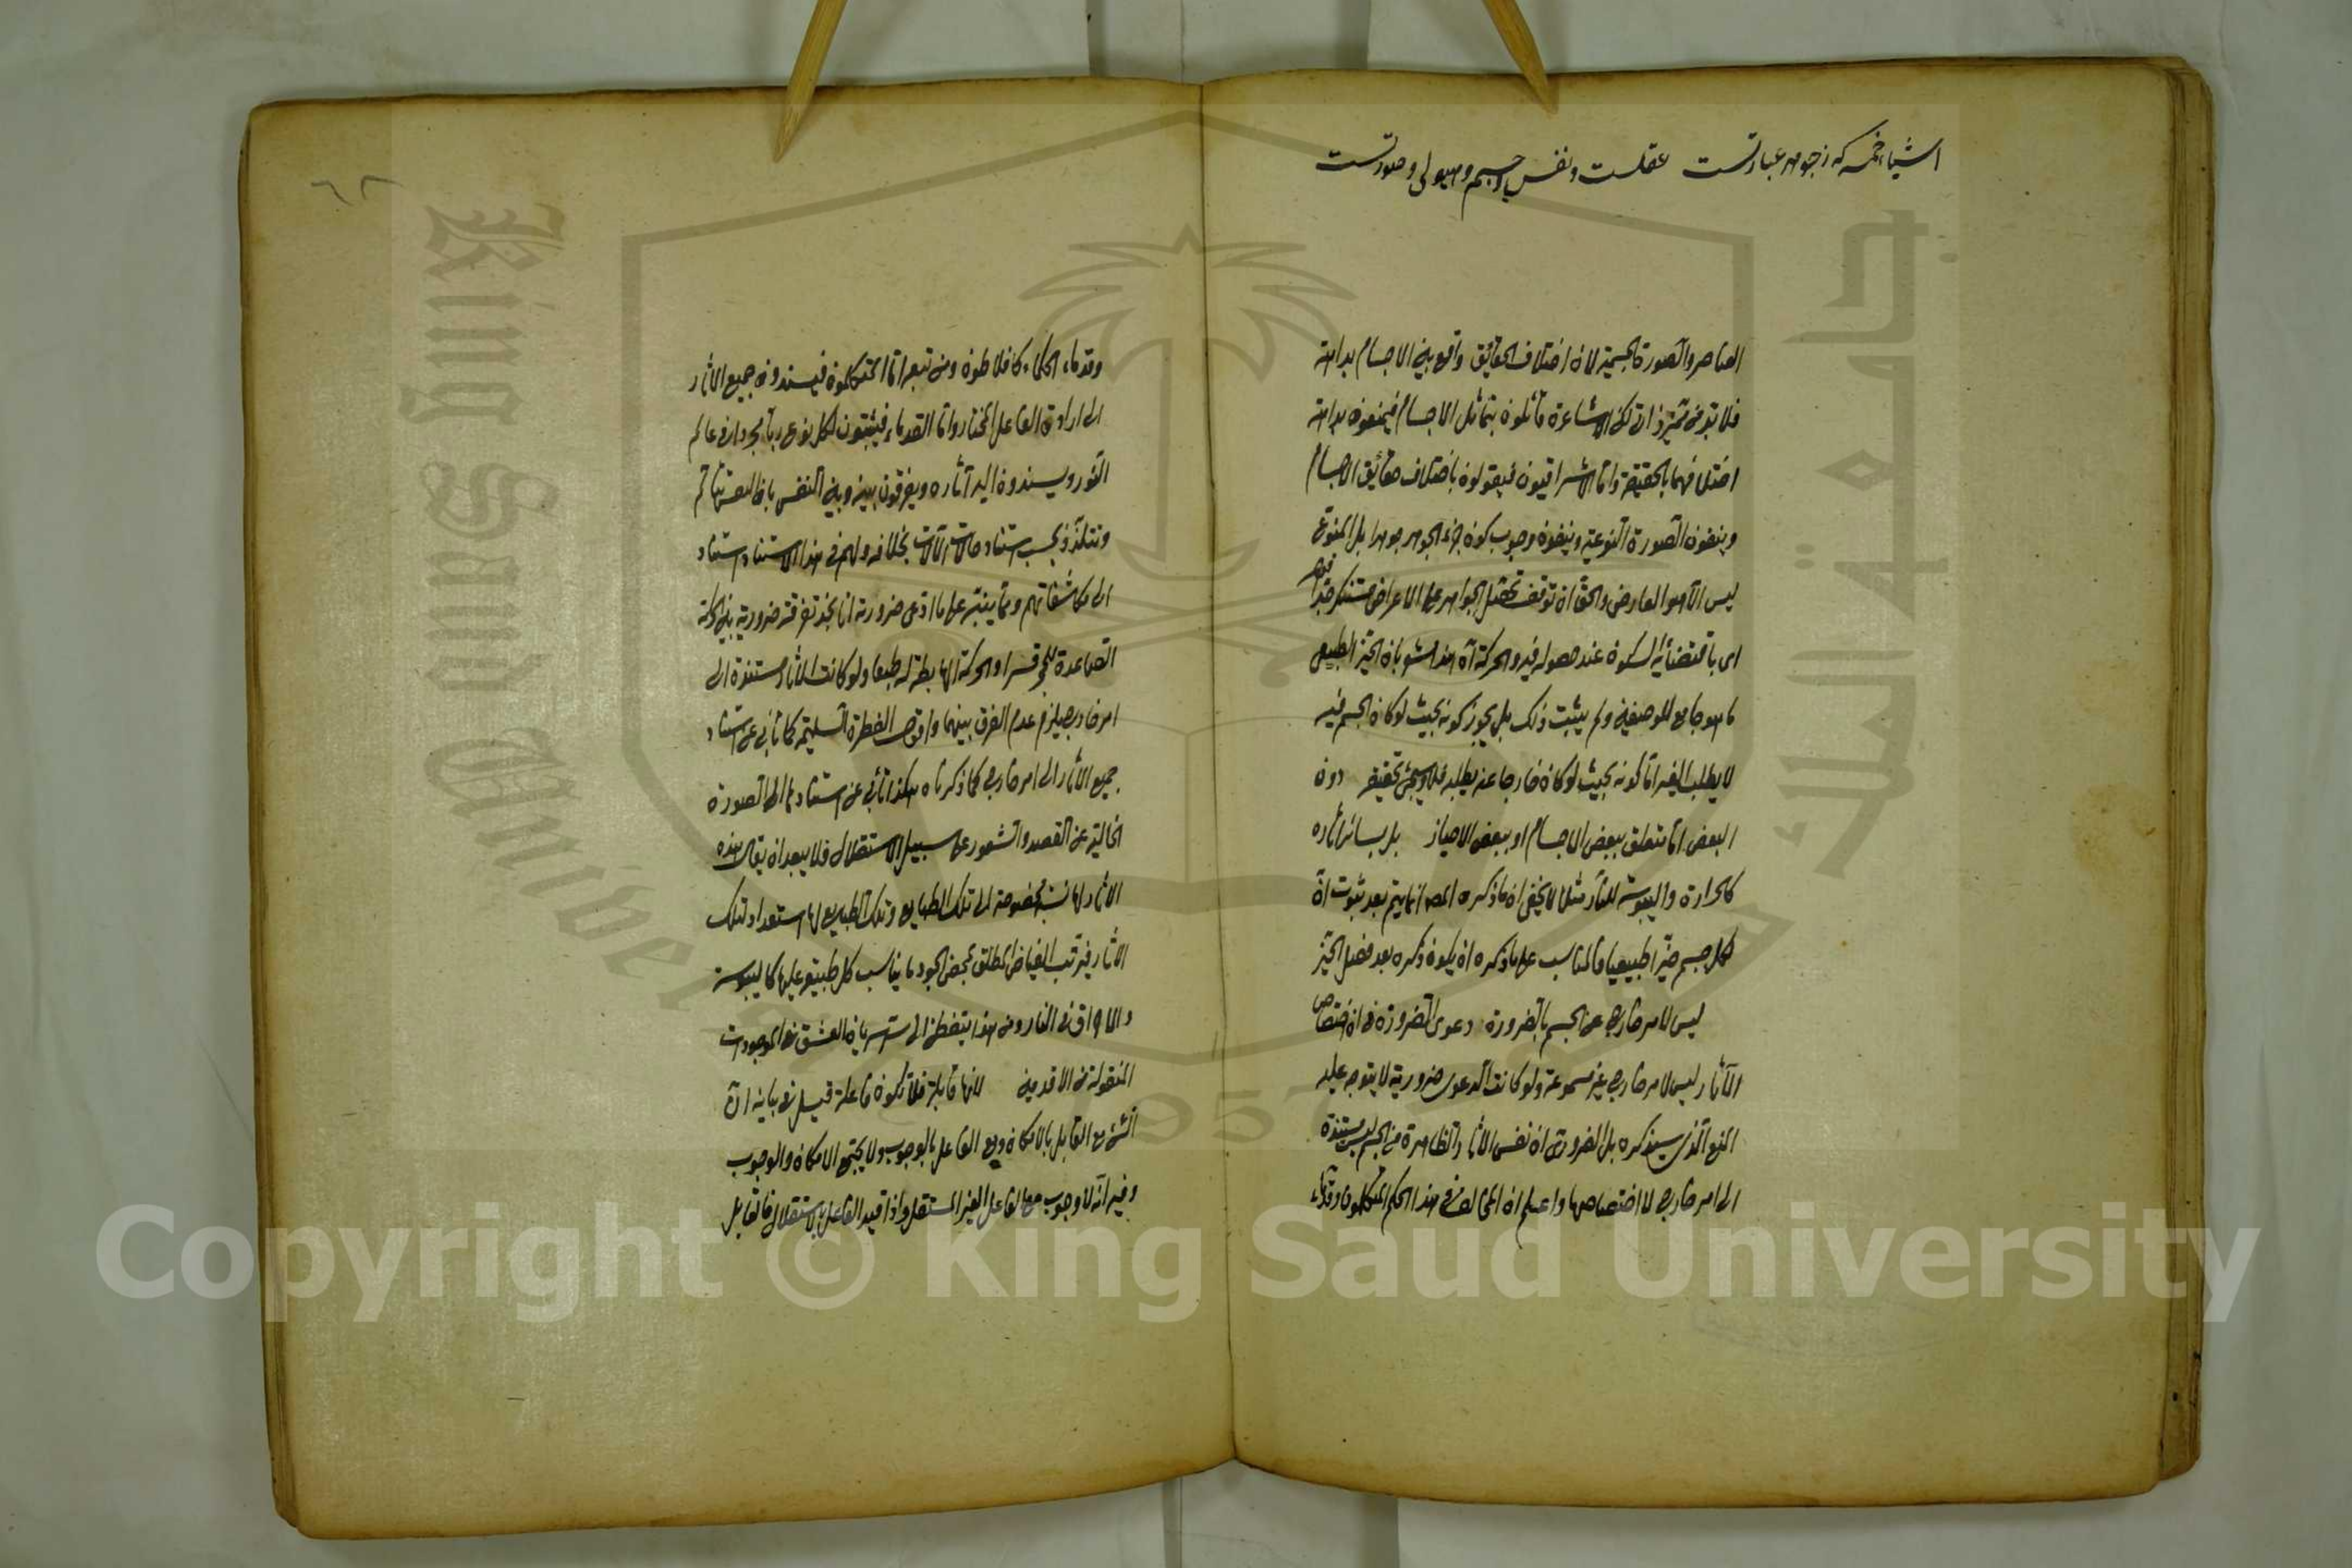 اشياء خمسه که ز جوهر عبارتست عقلست ونفس وجسم وهيولى وصورتست
العناصر والصورة الجسمية لان اختلاف الحقائق واقع بين الاجسام بداهة
فلا بد من مميز ذاتي لكن الاشاعرة قائلون بتماثل الاجسام فيمنعون بداهة
اختلافهما بالحقيقة واما الاشراقيون فيقولون باختلاف حقائق الاجسام
وينفون الصورة النوعية وينفون وجوب كون جزء الجوهر جوهرا بل المنوع
ليس الا هو العارض والحق ان توقف تحصل الجواهر على الاعراض مستنكر جدا قوله
اى باقتضائه السكون عند حصوله فيه والحركة آه هذا مشعر بان الحيز الطبيعى
ما هو جامع للوصفين ولم يثبت ذلك بل يجوز كونه بحيث لوكان الجسم فيه
لا يطلب الغير اما كونه بحيث لوكان خارجا عنه يطلبه فلا وسيجئ تحقيقه دون
البعض اما متعلق ببعض الاجسام او ببعض الاحياز بل بسائر آثاره
كالحرارة واليبوسة للنار مثلا لا يخفى ان ما ذكره المص انما يتم بعد ثبوت ان
لكل جسم حيزا طبيعيا فالمناسب على ما ذكره ان يكون ذكره بعد فصل الحيز
ليس لامر خارج عن الجسم بالضرورة دعوى الضرورة فى ان اختصاص
الآثار ليس لامر خارج غير مسموعة ولو كانت الدعوى ضرورية لا يتوجه عليه
المنع الذى سيذكره بل الضرورى ان نفس الآثار الظاهرة من الجسم ليس مستندة
الى امر خارج لا اختصاصها واعلم ان المخالف فى هذا الحكم المتكلمون وقدماء
٦٢
وقدماء الحكماء كافلاطون ومن تبعه اما المتكلمون فيسندون جميع الآثار
الى ارادة الفاعل المختار واما القدماء فيثبتون لكل نوع ربا مجردا فى عالم
النور ويسندون اليه آثاره ويفرقون بينه وبين النفس بان النفس تتألم
وتتلذذ بحسب استناد حالات الآلات بخلافه ولهم فى هذا الاستناد استناد
الى مكاشفاتهم ومما ينبه على ما ادعى ضرورته انا نجد تفرقة ضرورية بين الحركة
الصاعدة للحجر قسرا والحركة الهابطة له طبعا ولو كانت الآثار مستندة الى
امر خارج يلزم عدم الفرق بينهما واقول الفطرة السليمة كما تأبى عن استناد
جميع الآثار الى امر خارج كما ذكرناه هكذا تأبى عن استنادها الى الصورة
الخالية عن القصد والشعور على سبيل الاستقلال فلا يبعد ان يقال هذه
الآثار لها نسبة مخصوصة الى تلك الطبايع وتلك الطبايع لها استعداد لتلك
الآثار فيترتب الفياض المطلق بمحض الجود ما يناسب كل طبيعة عليها كاليبوسة
والاحراق فى النار ومن هذا يتفطن الى سر سريان العشق فى الموجودات
المنقولة من الاقدمين لانها قابلة فلا تكون فاعلة قيل فى بيانه ان
الشئ مع القابل بالامكان ومع الفاعل بالوجوب ولا يجتمع الامكان والوجوب
وفيه انه لا وجوب مع الفاعل الغير المستقل واذا قيد الفاعل بالاستقلال فالقابل